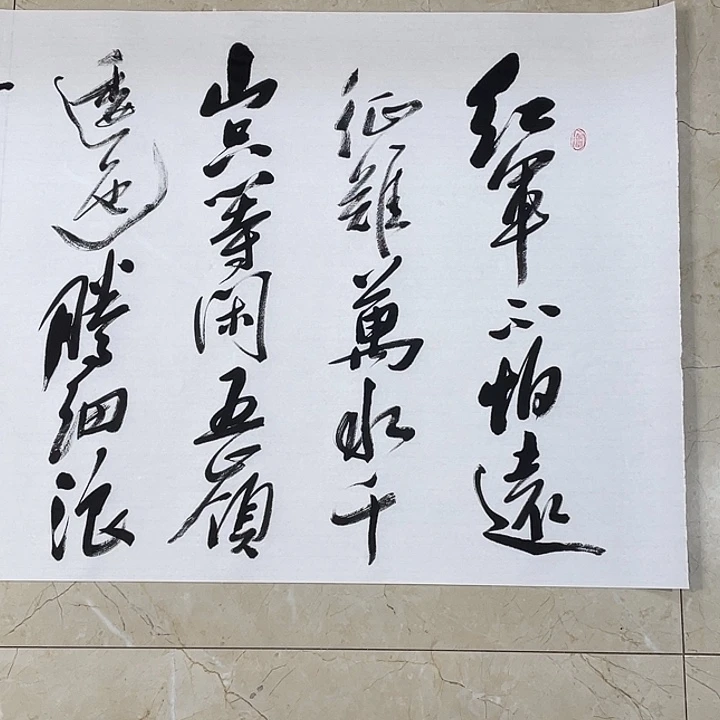 紅軍不怕遠
征難萬水千
山只等閑五嶺
逶迤騰細浪